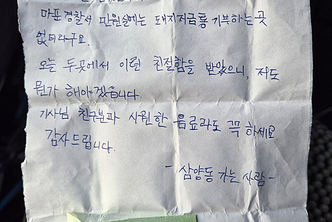 마포 경찰서 민원실에는 돼지저금통 기부하는 곳
없더라구요.
오늘 두곳에서 이런 친절함을 받았으니, 저도
뭔가 해야겠습니다.
기사님 친구분과 시원한 음료라도 꼭 하세요
감사드립니다.
- 삼양동 가는 사람 -